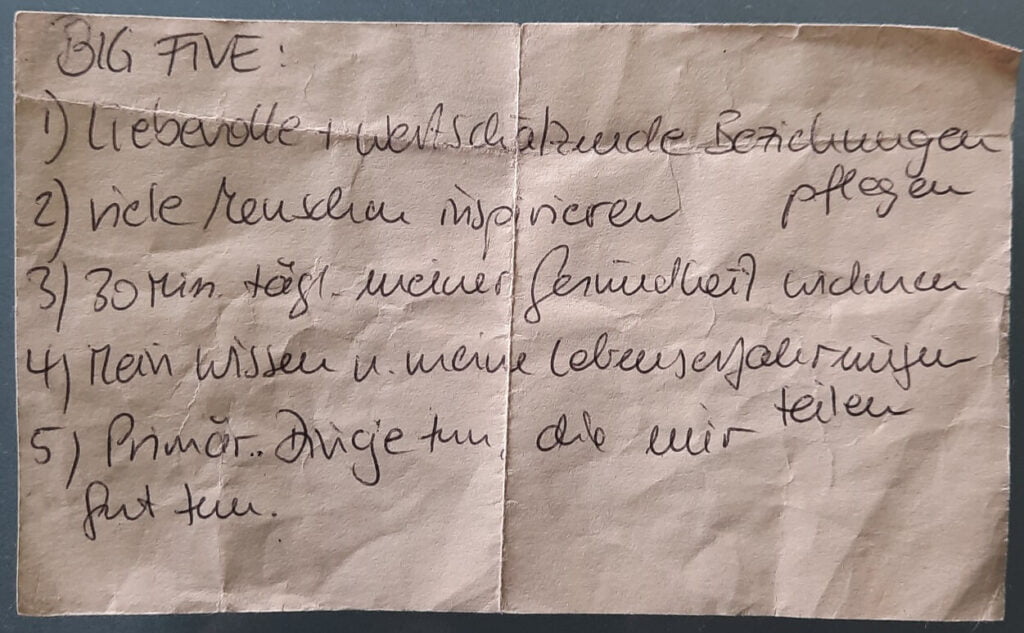 BIG FIVE:
1) Liebevolle + wertschätzende Beziehungen
pflegen
2) viele Menschen inspirieren
3) 30 Min. tägl. meiner Gesundheit widmen
4) Mein Wissen u. meine Lebenserfahrungen
teilen
5) Primär.. Dinge tun, die mir
gut tun.